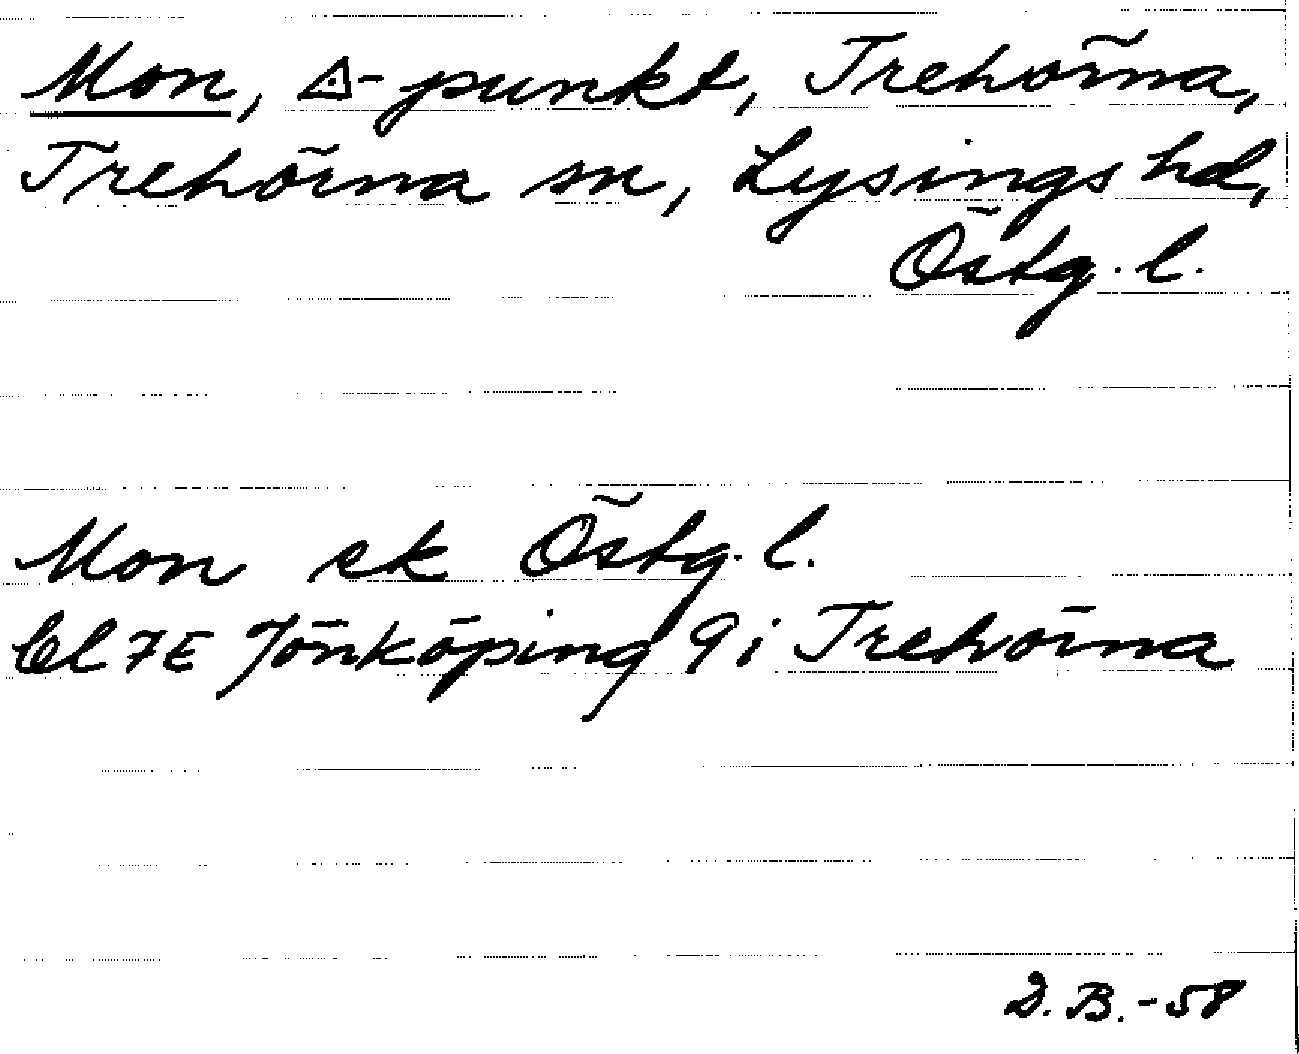 Mon, △-punkt, Trehörna,
Trehörna sn, Lysings hd,
Östg. l.
Mon ek Östg. l.
bl 7E Jönköping 9i Trehörna
D. B. -58